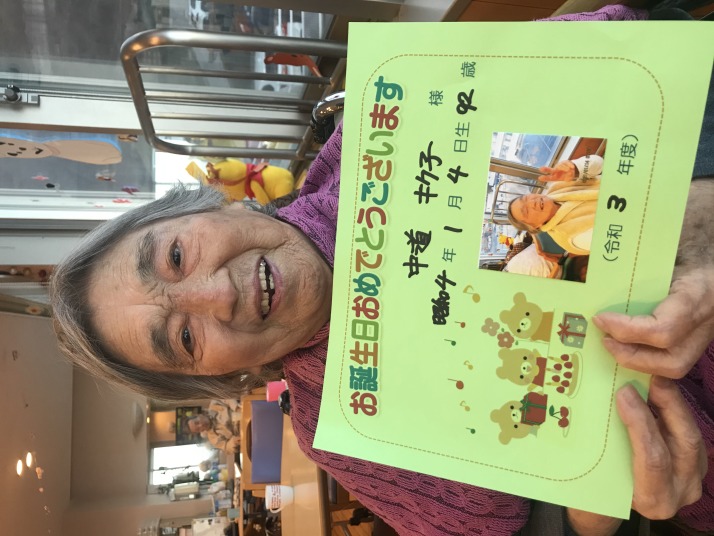 お誕生日おめでとうございます
中道 キク子 様
昭和4年 1月 4日生 92歳
(令和 3 年度)